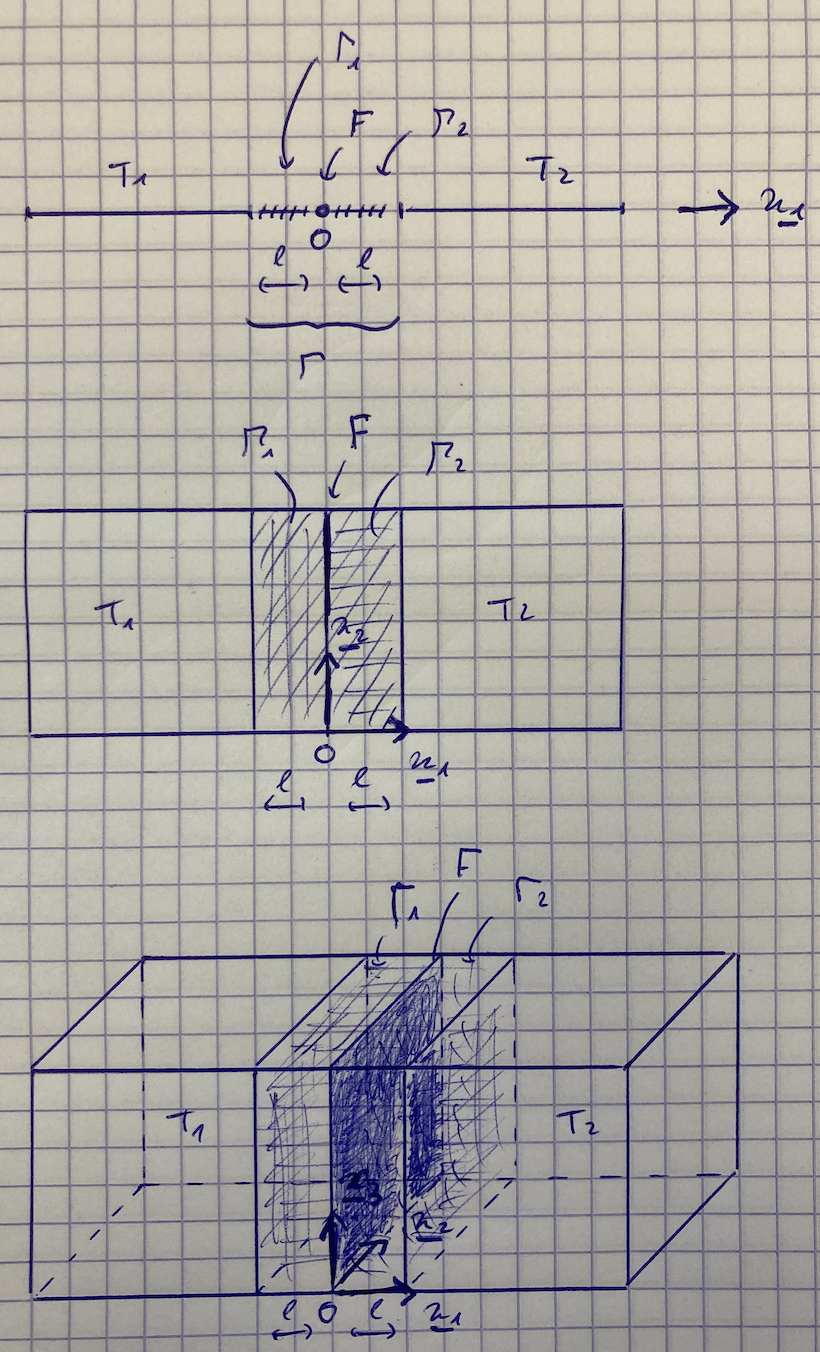 Γ₁
F Γ₂
T₁ T₂
x₁
O
l l
Γ
F
Γ₁ Γ₂
T₁ T₂
x₂
O
x₁
l l
F
Γ₁ Γ₂
T₁ T₂
x₃
x₂
l O l x₁